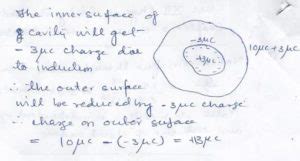 The inner surface of
cavity will get
- 3μc charge due
to induction
∴ the outer surface
will be reduced by - 3μc charge
∴ charge on outer surface
= 10μc - (-3μc) = 13μc
-3μc
+3μc
10μc + 3μc